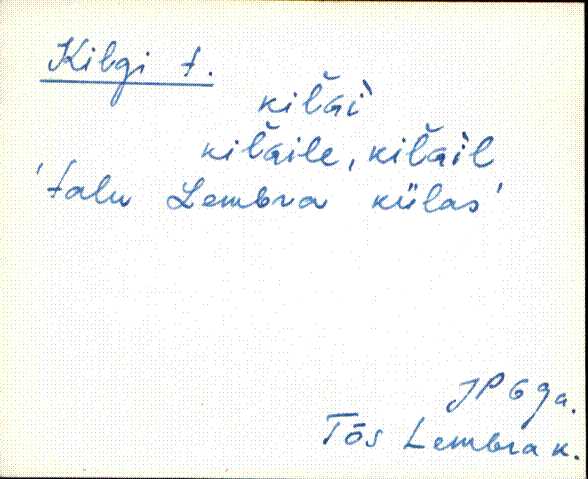 Kilgi t.
kiľ̆ài
kiľ̆aile, kiľ̆àil
'talu Lembra külas'
JP 69a.
Tõs Lembra k.